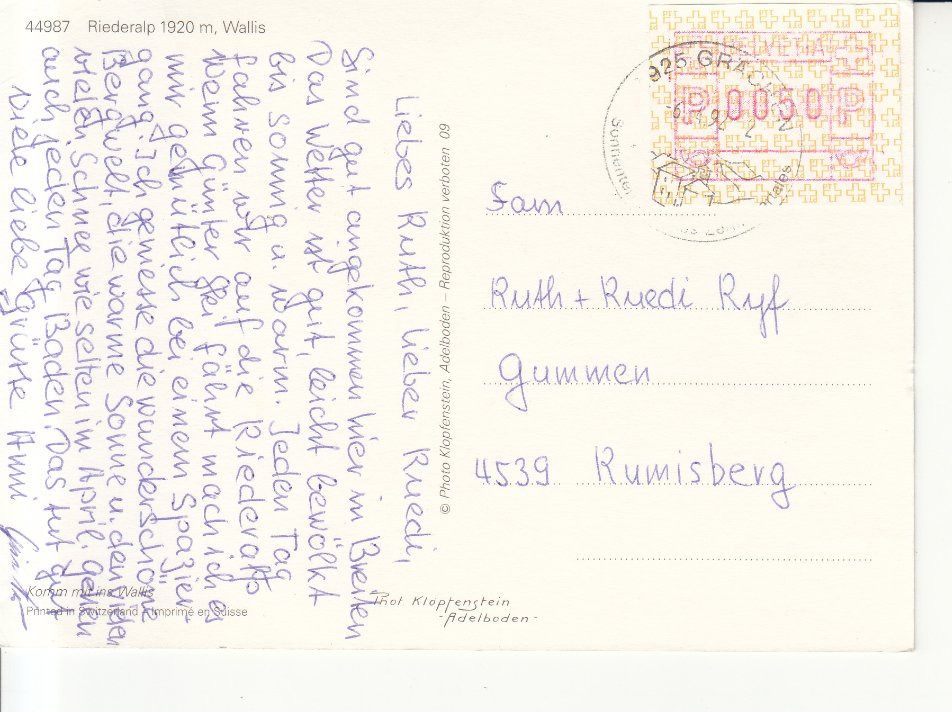 44987 Riederalp 1920 m, Wallis
Liebes Ruth, lieber Ruedi,
Sind gut angekommen hier in Breiten
Das Wetter ist gut, leicht bewölkt
bis sonnig u. warm. Jeden Tag
fahren wir auf die Riederalp
Wenn Günter Ski fährt mach ich es
mir gemütlich bei einem Spazier-
gang. Ich geniesse die wunderschöne
Bergwelt, die warme Sonne u. den vielen
vielen Schnee wie selten im April. Gehen
auch jeden Tag Baden. Das tut gut
Viele liebe Grüsse Anni
Komm mit ins Wallis
Printed in Switzerland – Imprimé en Suisse
© Photo Klopfenstein, Adelboden – Reproduktion verboten 09
Phot Klopfenstein
-Adelboden-
HELVETIA
P 0050 P
3925 GRÄCHEN
Fam
Ruth + Ruedi Ryf
Gummen
4539 Rumisberg